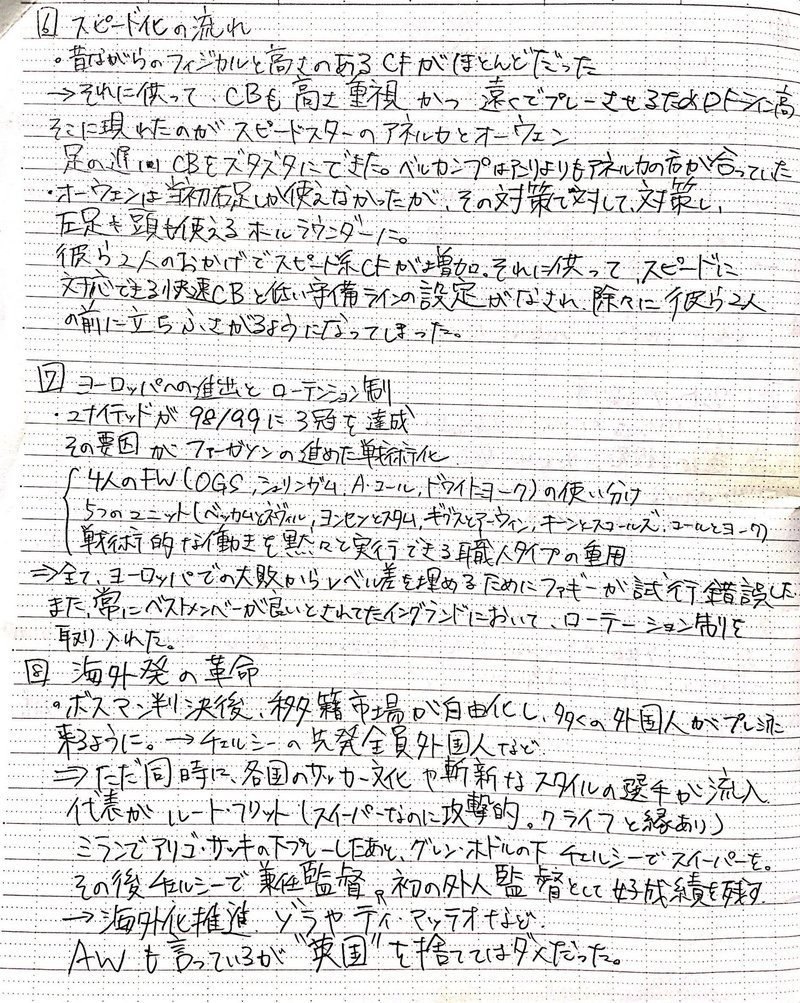 6 スピード化の流れ
・昔ながらのフィジカルと高さのあるCFがほとんどだった
→それに伴って、CBも高さ重視かつ遠くでプレーさせるためDFライン高
そこに現れたのがスピードスターのアネルカとオーウェン
足の遅いCBをズタズタにできた。ベルカンプはよりもアネルカの方が合っていた
・オーウェンは当初右足しか使えなかったが、その対策で対して、対策し、
左足も頭も使えるオールラウンダーに。
彼ら2人のおかげでスピード系CFが増加。それに供って、スピードに
対応できる快速CBと低い守備ラインの設定がなされ、除々に彼ら2人
の前に立ちふさがるようになってしまった。
7 ヨーロッパへの進出とローテンション制
・ユナイテッドが98/99に3冠を達成
その要因がファーガソンの進めた戦術化
4人のFW(OGS,シェリンガム,A・コール,ドワイトヨーク)の使い分け
5つのユニット(ベッカムとネヴィル,ヨンセンとスタム,ギグスとアーウィン,キーンとスコールズ,コールとヨーク)
戦術的な働きを黙々と実行できる職人タイプの重用
⇒全て、ヨーロッパでの大敗からレベル差を埋めるためにファギーが試行錯誤した
また、常にベストメンバーが良いとされてたイングランドにおいて、ローテーション制を
取り入れた。
8 海外発の革命
・ボスマン判決後、移籍市場が自由化し、多くの外国人がプレミアに
来るように。→チェルシーの先発全員外国人など
⇒ただ同時に、各国のサッカー文化や斬新なスタイルの選手が流入
代表がルート・フリット(スイーパーなのに攻撃的。クライフと縁あり)
ミランでアリゴ・サッキの下プレーしたあと、グレン・ホドルの下チェルシーでスイーパーを。
その後チェルシーで兼任監督。初の外人監督として好成績を残す
→海外化推進 ゾラやディ・マッテオなど.
AWも言っているが"英国"を捨ててはダメだった。